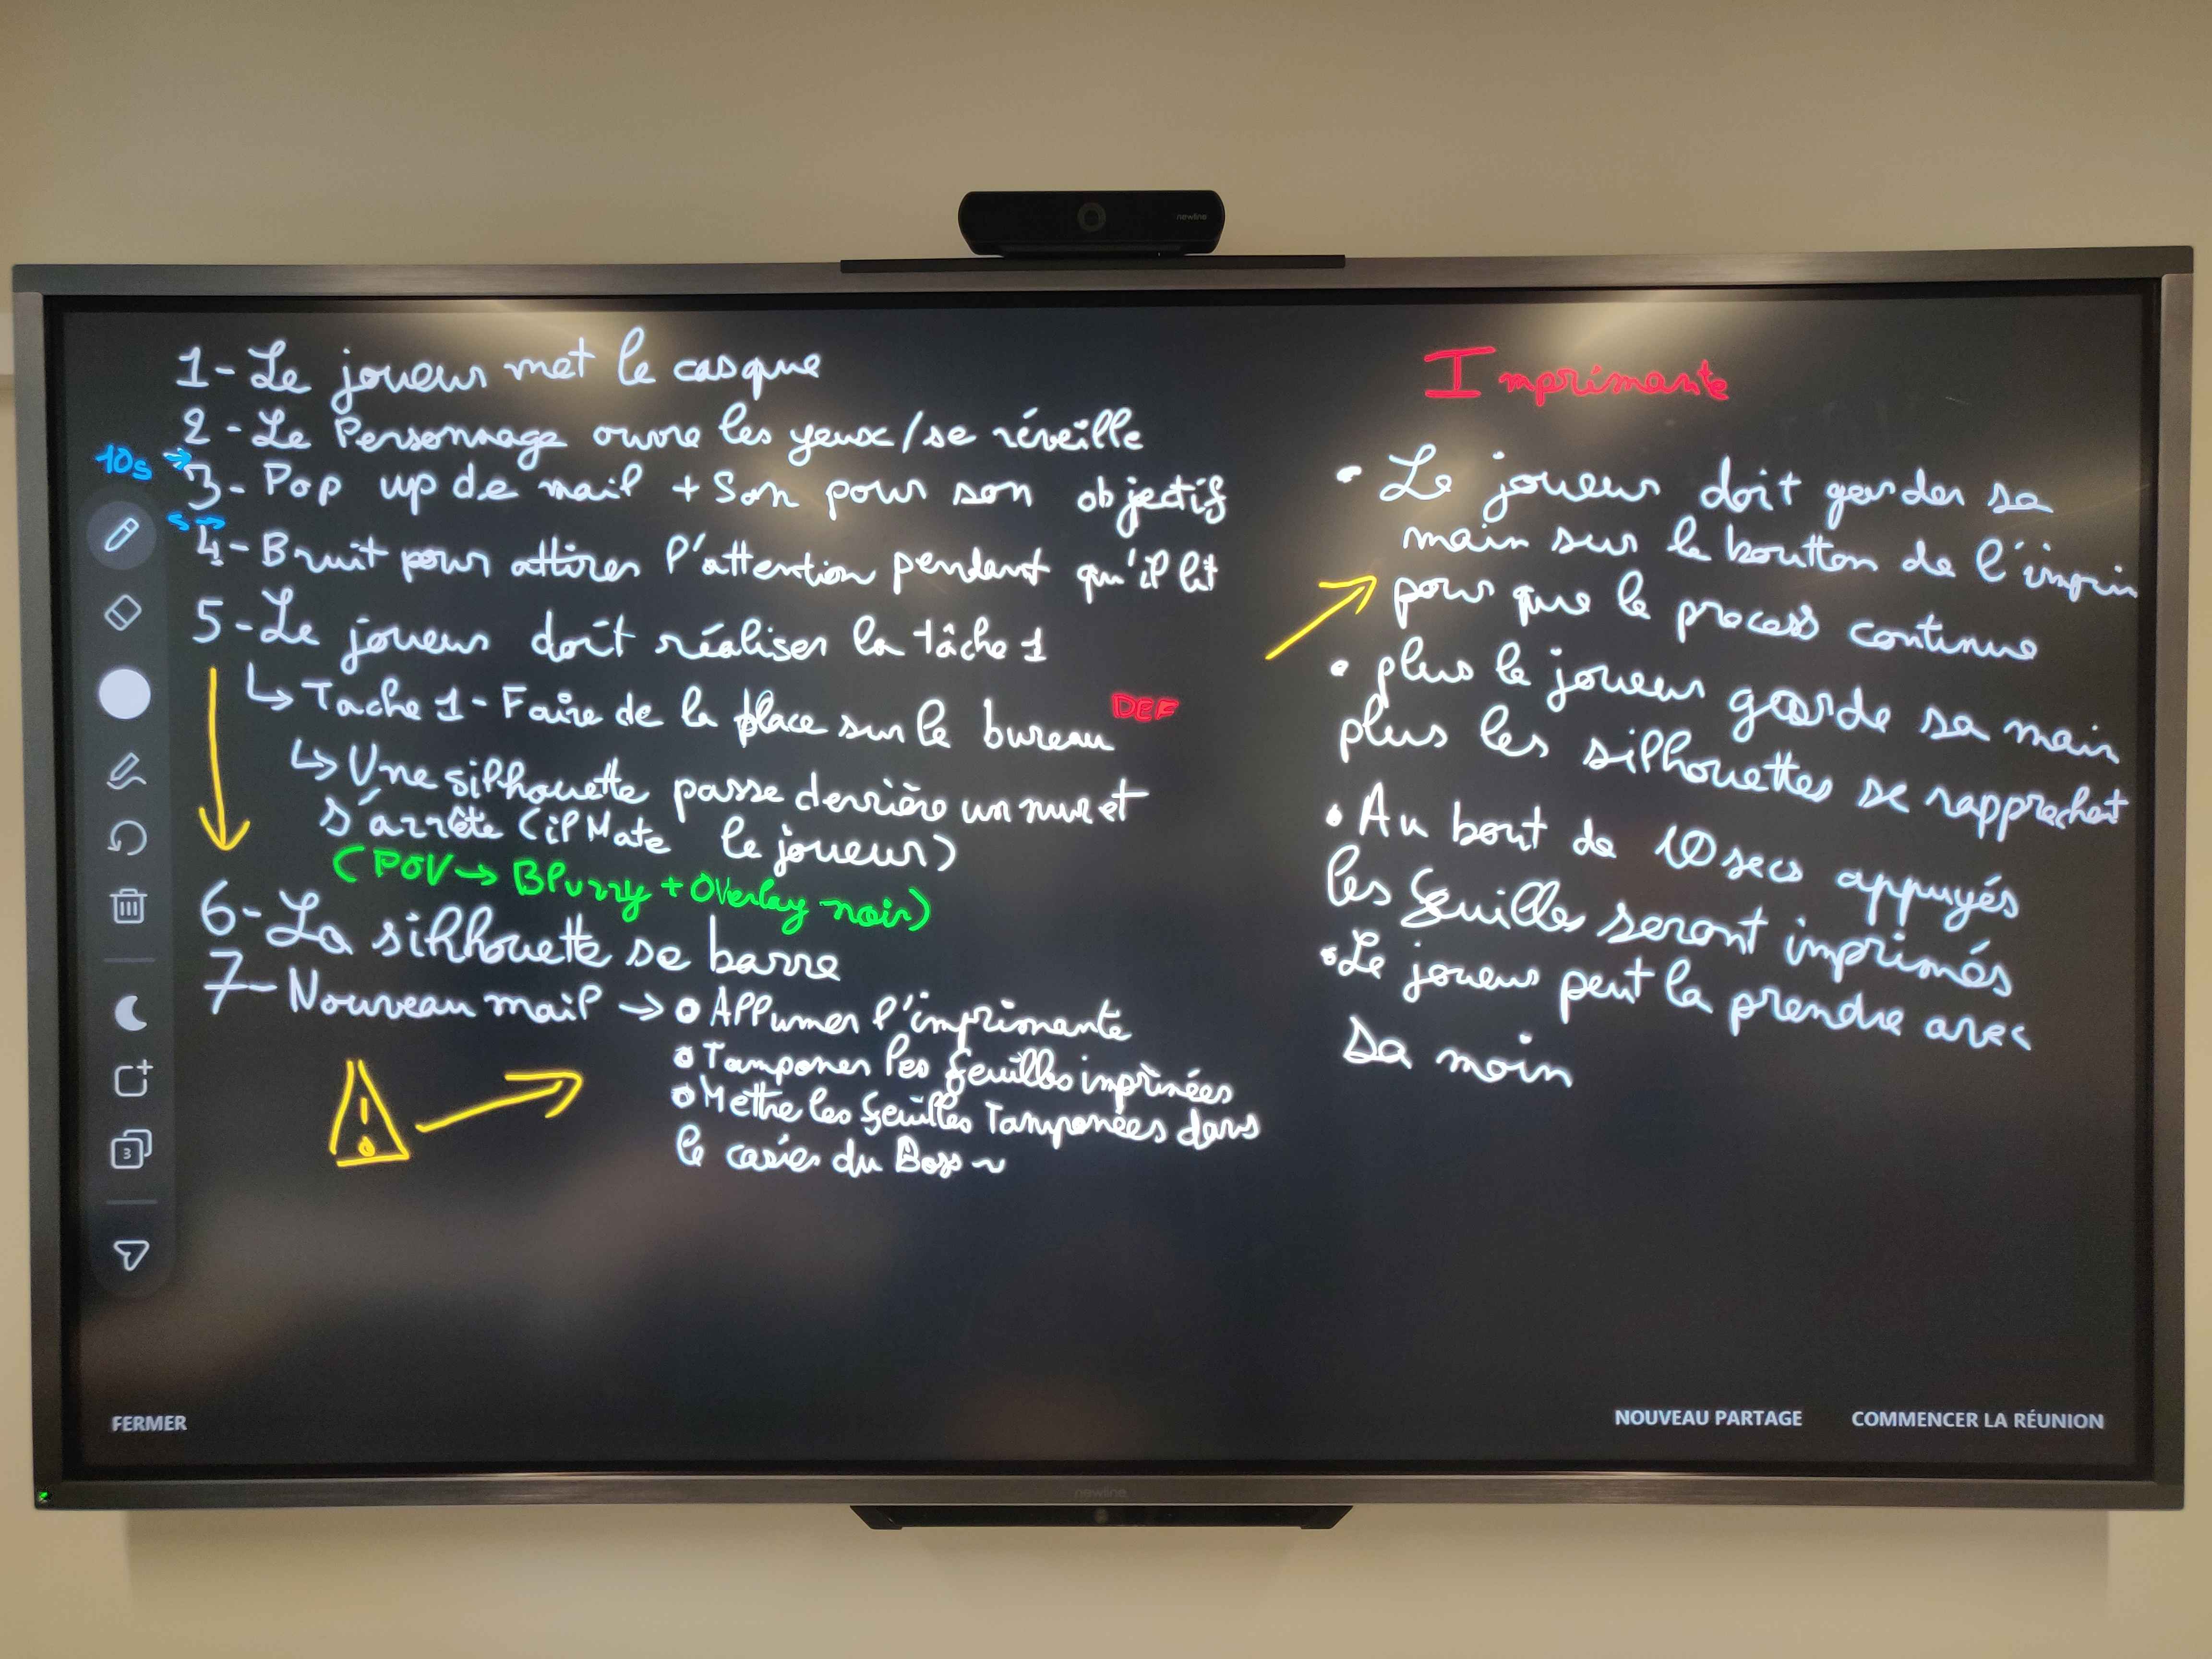 newline
1- Le joueur met le casque
2 - Le Personnage ouvre les yeux/se réveille
10s →
3- Pop up de mail + Son pour son objectif
4- Bruit pour attirer l'attention pendant qu'il lit
5-Le joueur doit réaliser la tâche 1
↳ Tache 1- Faire de la place sur le bureau DEF
↳ Une silhouette passe derrière un mur et
s'arrête (il Mate le joueur)
(POV → Blurry + Overlay noir)
6- La silhouette se barre
7- Nouveau mail → • Allumer l'imprimante
• Tamponer les feuilles imprimées
• Mettre les feuilles Tamponées dans
le casier du Boss ~
!
Imprimante
• Le joueur doit garder sa
main sur le boutton de l'imprim
pour que le process continue
• plus le joueur garde sa main
plus les silhouettes se rapprochent
• Au bout de 10 secs appuyés
les feuilles seront imprimés
• Le joueur peut la prendre avec
sa main
3
FERMER
NOUVEAU PARTAGE COMMENCER LA RÉUNION
newline